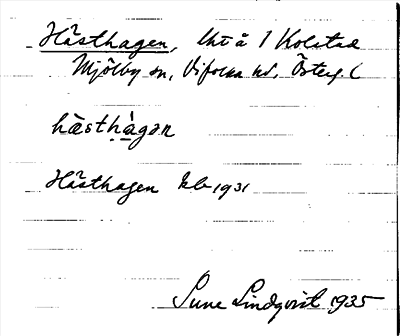 Hästhagen, lht å 1 Kolstad
Mjölby sn, Vifolka hd, Österg. l
hästhàgən
Hästhagen kb 1931
Sune Lindqvist 1935